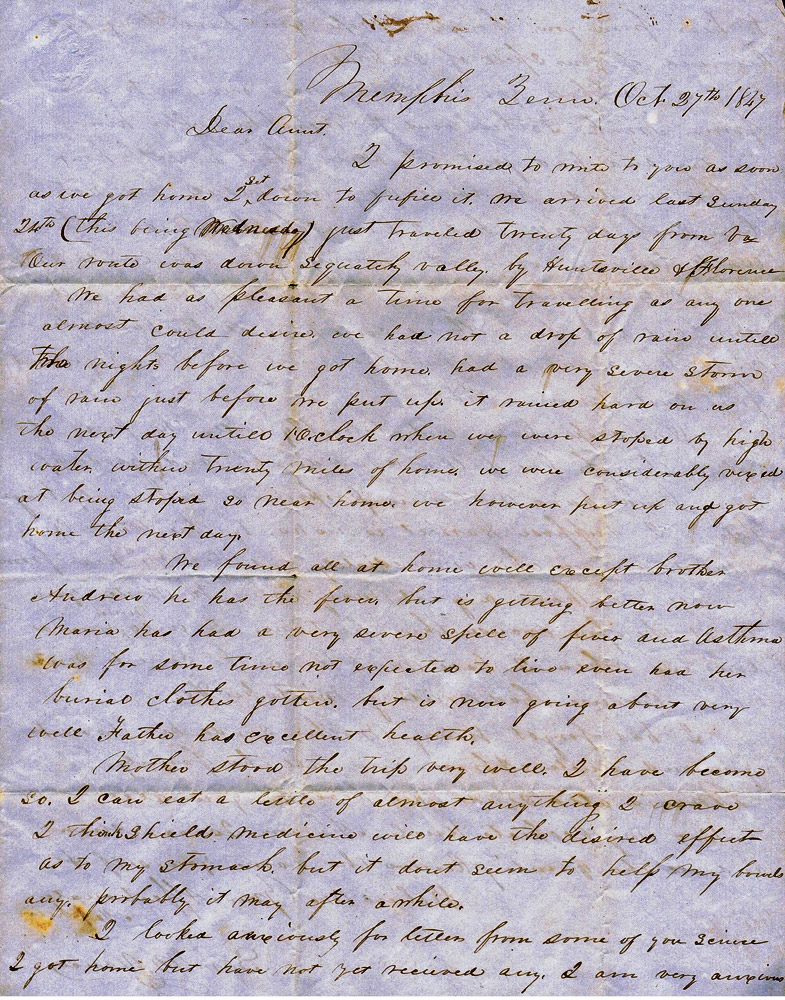 Memphis Tenn. Oct 27th 1847
Dear Aunt.
I promised to write to you as soon
as we got home I set down to fulfill it. We arrived last Sunday
24th (this being Wednesday) just traveled twenty days from Va
Our route was down Sequatchy vally, by Huntsville & Florence
We had as pleasant a time for travelling as any one
almost could desire. we had not a drop of rain untill
two nights before we got home. had a very severe storm
of rain just before we put up. it rained hard on us
the next day untill 1 Oclock when we were stoped by high
water, within twenty miles of home. we were considerably vexed
at being stoped so near home. we however put up and got
home the next day.
We found all at home well except brother
Andrew he has the fever, but is getting better now
Maria has had a very severe spell of fever and Asthma
was for some time not expected to live even had her
burial clothes gotten. but is now going about very
well Father has excellent health.
Mother stood the trip very well. I have become
so. I can eat a little of almost anything I crave
I think Shield medicine will have the disired effect
as to my stomach. but it dont seem to help my bowels
any. probably it may after awhile.
I looked anxiously for letters from some of you scince
I got home but have not yet recieved any. I am very anxious